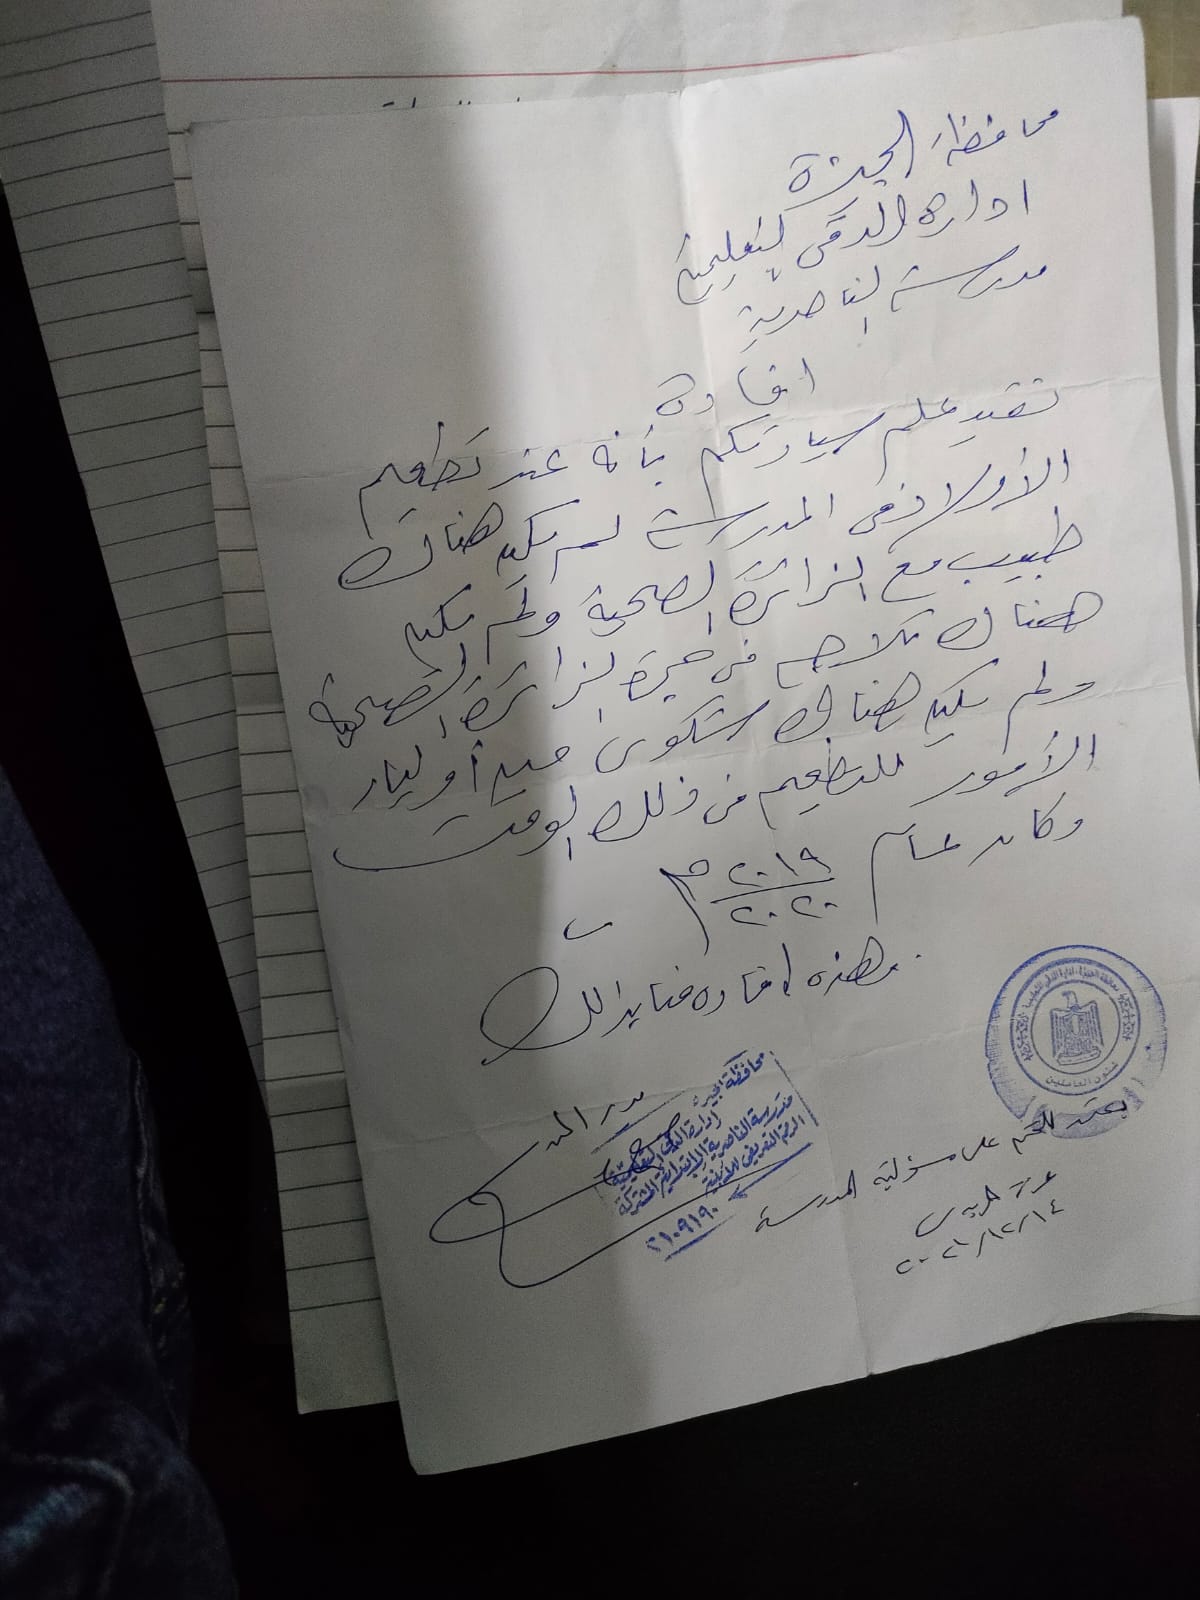 محافظة الجيزة
ادارة الدقى التعليمية
مدرسة الناصرية
افادة
نفيد علم سيادتكم بأنه عند تطعيم
الأولاد فى المدرسة لم يكن هناك
طبيب مع الزائرة الصحية ولم يكن
هناك ثلاجه فى حجرة الزائرة الصحية
ولم يكن هناك شكوى من أولياء
الأمور للتطعيم فى ذلك الوقت
وكان عام ٢٠١٩/٢٠٢٠ م
وهذه افادة منا بذلك
مدير المدرسة
محافظة الجيزة
إدارة الدقى التعليمية
مدرسة الناصرية الابتدائية المشتركة
الرقم التعريفى للأبنية
٢١٠٩١٩٠
محافظة الجيزة - إدارة الدقى التعليمية
شئون العاملين
يعتمد الختم على مسئولية المدرسة
٢٠٢١/١٢/١٤